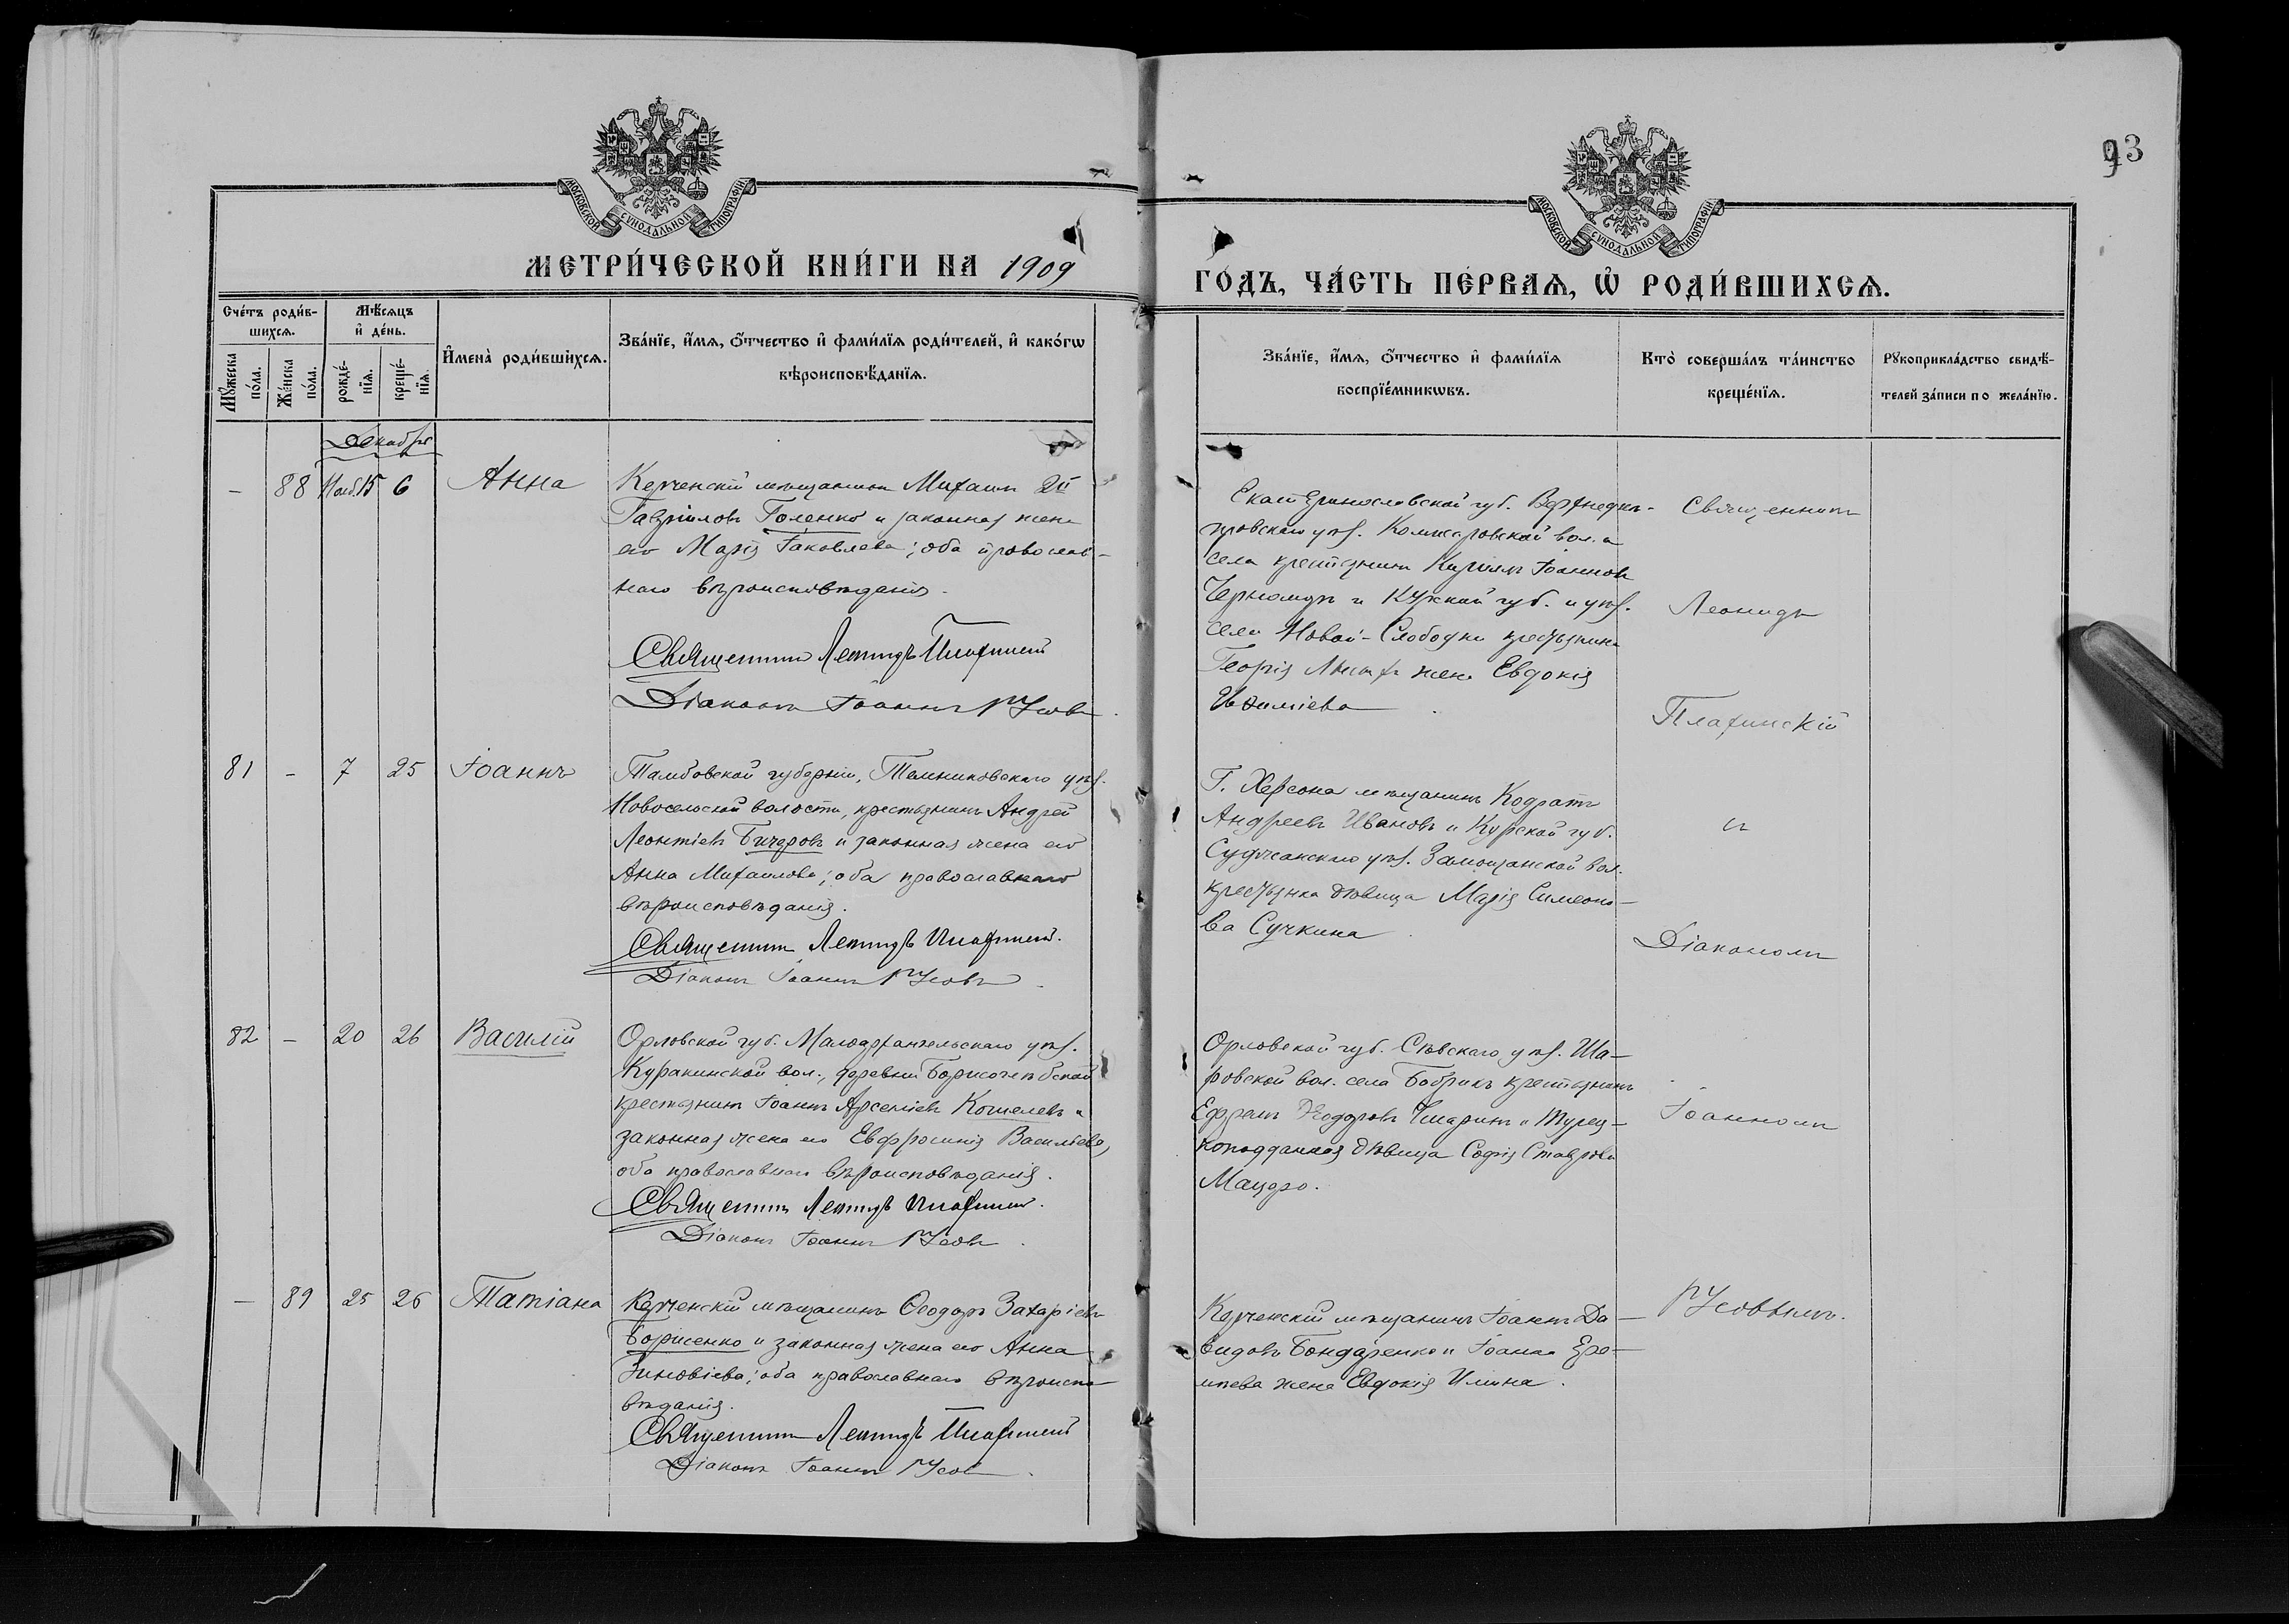 93
МОСКОВСКОЙ СѴНОДАЛЬНОЙ ТИПОГРАФІИ
МОСКОВСКОЙ СѴНОДАЛЬНОЙ ТИПОГРАФІИ
МЕТРИ́ЧЕСКОЙ КНИ́ГИ НА 1909
ГО́ДЪ, ЧА́СТЬ ПЕ́РВАѦ, Ѡ҆ РОДИ́ВШИХСѦ.
Сче́тъ роди́в-
шихсѧ.
Мꙋ́жеска по́ла.
Же́нска по́ла.
Мѣ́сѧцъ
и҆ де́нь.
рожде́-нїѧ.
креще́-нїѧ.
И҆мена̀ роди́вшихсѧ.
Зва́нїе, и҆́мѧ, ѻ҆́тчество и҆ фами́лїѧ роди́телей, и҆ како́гѡ
вѣроисповѣ́данїѧ.
Зва́нїе, и҆́мѧ, ѻ҆́тчество и҆ фами́лїѧ
воспрїе́мникѡвъ.
Кто̀ соверша́лъ та́инство
креще́нїѧ.
Рꙋкоприкла́дство свидѣ́-
телей за́писи по жела́нїю.
Декабрь
- 88 Нояб. 15 6 Анна
Керченскій мѣщанинъ Михаилъ
Гавріиловъ Голенко и законная жена
его Марія Іаковлева; оба православ-
наго вѣроисповѣданія.
Священникъ Леонидъ
Діаконъ Іоаннъ Русовъ
Екатеринославской губ. Верхнедне-
провскаго уѣз. Комисаровской вол. и
села крестьянинъ Кириллъ Іоанновъ
и губ. и уѣз.
села Новой-Слободки крестьянина
Георгія жена Евдокія
Священникъ
Леонидъ
81 - 7 25 Іоаннъ
Тамбовской губерніи, Темниковскаго уѣз.
Новосельской волости, крестьянинъ Андрей
Леонтіевъ Бичеровъ и законная жена его
Анна Михаилова; оба православнаго
вѣроисповѣданія.
Священникъ Леонидъ
Діаконъ Іоаннъ Русовъ
Г. Херсона мѣщанинъ Кодратъ
Андреевъ Ивановъ и Курской губ.
Суджанскаго уѣз. Замощанской вол.
крестьянка дѣвица Марія Симеоно-
ва Сучкина
съ
Діакономъ
82 - 20 26 Василій
Орловской губ. Малоархангельскаго уѣз.
Куракинской вол., деревни Борисоглѣбской
крестьянинъ Іоаннъ Арсеніевъ Кошелевъ и
законная жена его Евфросинія Васильева,
оба православнаго вѣроисповѣданія.
Священникъ Леонидъ
Діаконъ Іоаннъ Русовъ
Орловской губ. Сѣвскаго уѣз. Ша-
ровской вол. села Бобрикъ крестьянинъ
Ефремъ Ѳеодоровъ и Турец-
коподданная дѣвица Софія Ставрова
Іоанномъ
- 89 25 26 Татіана
Керченскій мѣщанинъ Ѳеодоръ Захаріевъ
Борисенко и законная жена его Анна
Зиновіева; оба православнаго вѣроиспо-
вѣданія.
Священникъ Леонидъ
Діаконъ Іоаннъ Русовъ
Керченскій мѣщанинъ Іоаннъ Да-
видовъ Бондаренко и Іоанна Ере-
жена Евдокія Ильина.
Русовымъ.